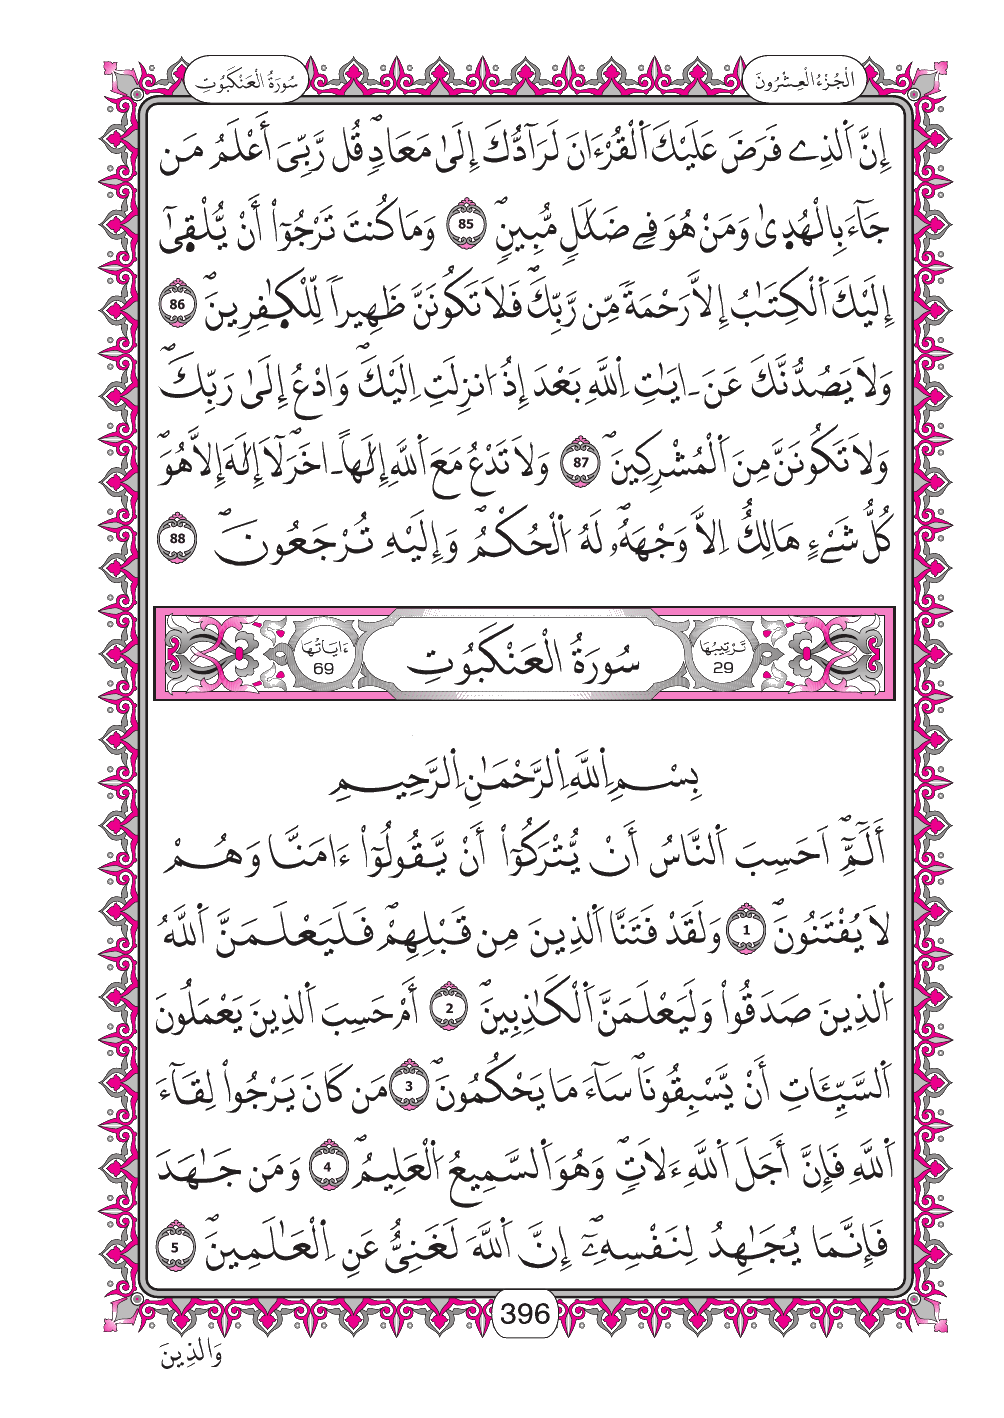 الْجُزْءُ الْعِشْرُونَ
سُورَةُ الْعَنْكَبُوتِ
إِنَّ اَ۬لذِے فَرَضَ عَلَيْكَ اَ۬لْقُرْءَانَ لَرَآدُّكَ إِلَىٰ مَعَادٖۖ قُل رَّبِّيَ أَعْلَمُ مَن
جَآءَ بِالْهُد۪ىٰ وَمَنْ هُوَ فِے ضَلَٰلٖ مُّبِينٖۖ 85 وَمَا كُنتَ تَرْجُوٓاْ أَنْ يُّلْق۪ىٰٓ
إِلَيْكَ اَ۬لْكِتَٰبُ إِلَّا رَحْمَةٗ مِّن رَّبِّكَۖ فَلَا تَكُونَنَّ ظَهِيراٗ لِّلْكٰ۪فِرِينَۖ 86
وَلَا يَصُدُّنَّكَ عَنَ ـ اَيَٰتِ اِ۬للَّهِ بَعْدَ إِذُ ا۟نزِلَتِ اِلَيْكَۖ وَادْعُ إِلَىٰ رَبِّكَۖ
وَلَا تَكُونَنَّ مِنَ اَ۬لْمُشْرِكِينَۖ 87 وَلَا تَدْعُ مَعَ اَ۬للَّهِ إِلَٰهاً ـ اخَرَۖ لَآ إِلَٰهَ إِلَّا هُوَۖ
كُلُّ شَےْءٍ هَالِكٌ اِلَّا وَجْهَهُۥۖ لَهُ اُ۬لْحُكْمُ وَإِلَيْهِ تُرْجَعُونَۖ 88
تَرْتِيبُهَا 29
سُورَةُ الْعَنْكَبُوتِ
ءَايَاتُهَا 69
بِسْمِ اِ۬للَّهِ اِ۬لرَّحْمَٰنِ اِ۬لرَّحِيمِ
أَلَٓمِّٓۖ اَحَسِبَ اَ۬لنَّاسُ أَنْ يُّتْرَكُوٓاْ أَنْ يَّقُولُوٓاْ ءَامَنَّا وَهُمْ
لَا يُفْتَنُونَۖ 1 وَلَقَدْ فَتَنَّا اَ۬لذِينَ مِن قَبْلِهِمْۖ فَلَيَعْلَمَنَّ اَ۬للَّهُ
اُ۬لذِينَ صَدَقُواْ وَلَيَعْلَمَنَّ اَ۬لْكَٰذِبِينَۖ 2 أَمْ حَسِبَ اَ۬لذِينَ يَعْمَلُونَ
اَ۬لسَّيِّـَٔاتِ أَنْ يَّسْبِقُونَاۖ سَآءَ مَا يَحْكُمُونَۖ 3 مَن كَانَ يَرْجُواْ لِقَآءَ
اَ۬للَّهِ فَإِنَّ أَجَلَ اَ۬للَّهِ ءَلَاتٖۖ وَهُوَ اَ۬لسَّمِيعُ اُ۬لْعَلِيمُۖ 4 وَمَن جَٰهَدَ
فَإِنَّمَا يُجَٰهِدُ لِنَفْسِهِۦٓۖ إِنَّ اَ۬للَّهَ لَغَنِيٌّ عَنِ اِ۬لْعَٰلَمِينَۖ 5
396
وَالذِينَ